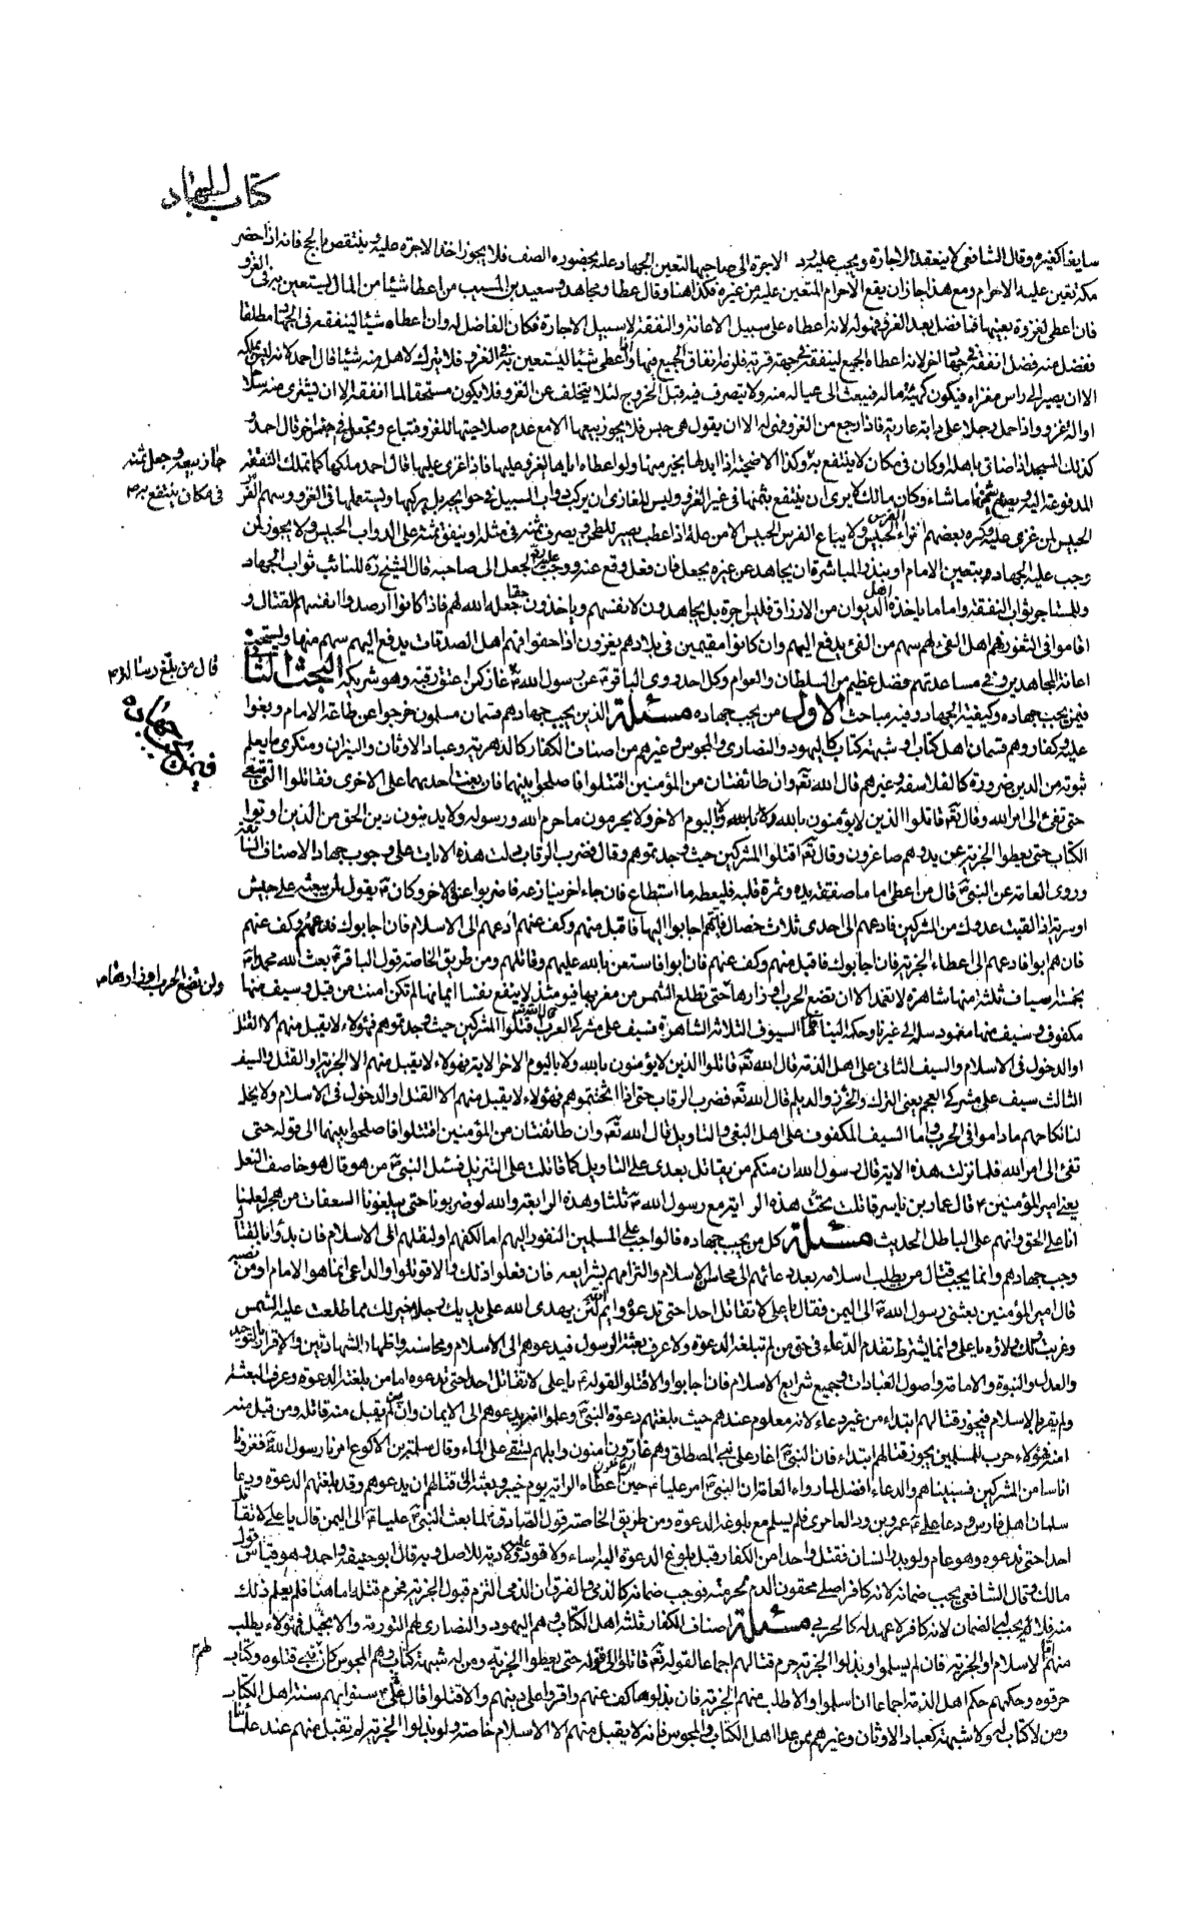 كتاب الجهاد
سايغا كغيره وقال الشافعي لا ينعقد الاجارة ويجب عليه رد الاجرة الى صاحبها لتعين الجهاد عليه بحضوره الصف فلا يجوز اخذ الاجرة عليه وينتقض بالحج فانه اذا حضر
مكة تعين عليه الاحرام ومع هذا جاز ان يقع الاحرام المتعين عليه من غيره فكذا هنا وقال عطا ومجاهد وسعيد بن المسيب من اعطا شيئا من المال يستعين به في الغزو
فان اعطى لغزوة بعينها فما فضل بعد الغزو فهو له لانه اعطاه على سبيل الاعانة والنفقة لا سبيل الاجارة فكان الفاضل له وان اعطاه شيئا لينفقه في الجهاد مطلقا
ففضل منه فضل انفقه في جهاد اخر لانه اعطاه الجميع لينفقه في جهة قربة فلزمه انفاق الجميع فيها ولو اعطى شيئا ليستعين به في الغزو فلا يترك لاهله منه شيئا قال احمد لانه ليس يملكه
الا ان يصير الى راس مغزاه فيكون كهيئة ماله فيبعث الى عياله منه ولا يتصرف فيه قبل الخروج لئلا يتخلف عن الغزو فلا يكون مستحقا لما انفقه الا ان يشتري منه سلاحا
او الة غزو واذا حمل رجلا على دابة عارية فاذا رجع من الغزو فهي له الا ان يقول هي حبس فلا يجوز بيعها الا مع عدم صلاحيتها للغزو فتباع ويجعل في حبس اخر قال احمد و
كذلك المسجد اذا ضاق باهله وكان في مكان لا ينتفع به وكذا الاضحية اذا ابدلها بخير منها ولو اعطاه اياها ليغزو عليها فاذا غزى عليها قال احمد ملكها كما تملك النفقة
جاز بيعه وجعل ثمنه
في مكان ينتفع به
المدفوعة اليه ويصنع بثمنها ما شاء وكان مالك لا يرى ان ينتفع بثمنها في غير الغزو وليس للغازي ان يركب دواب السبيل في حوايجه بل يركبها ويستعملها في الغزو وسهم الفرس
الحبيس لمن غزى عليه وكره بعضهم انزاء الفرس الحبيس ولا يباع الفرس الحبيس الا من علة اذا عطب يصير للطحن ويصرف ثمنه في مثله او ينفق ثمنه على الدواب الحبيس ولا يجوز لمن
وجب عليه الجهاد بتعيين الامام او بنذر المباشرة ان يجاهد عن غيره بجعل فان فعل وقع عنه ووجب عليه رد الجعل الى صاحبه قال الشيخ ره للنائب ثواب الجهاد
وللمستاجر ثواب النفقة واما ما ياخذه اهل الديوان من الارزاق فليس اجرة بل يجاهدون لانفسهم وياخذون حقا جعله الله لهم فاذا كانوا ارصدوا انفسهم للقتال و
اقاموا في الثغور فهم اهل الفيء لهم سهم من الفيء يدفع اليهم وان كانوا مقيمين في بلادهم يغزون اذا خفوا فهم اهل الصدقات يدفع اليهم سهم منها ويستحب
اعانة المجاهدين وفي مساعدتهم فضل عظيم من السلطان والعوام وكل احد روى الباقر ع عن رسول الله ص غاز كمن اعتق رقبة وهو شريكه البحث الثاني
قال من بلغ رسالة
فيمن يجب جهاده وكيفية الجهاد وفيه مباحث الاول من يجب جهاده مسئلة الذين يجب جهادهم قسمان مسلمون خرجوا عن طاعة الامام وبغوا
فيمن يجب جهاده
عليه وكفار وهم قسمان اهل كتاب او شبهة كتاب كاليهود والنصارى والمجوس وغيرهم من اصناف الكفار كالدهرية وعباد الاوثان والنيران ومنكري ما يعلم
ثبوته من الدين ضرورة كالفلاسفة وغيرهم قال الله تعه وان طائفتان من المؤمنين اقتتلوا فاصلحوا بينهما فان بغت احديهما على الاخرى فقاتلوا التي تبغي
حتى تفئ الى امر الله وقال تعه قاتلوا الذين لا يؤمنون بالله ولا باليوم الاخر ولا يحرمون ما حرم الله ورسوله ولا يدينون دين الحق من الذين اوتوا
الكتاب حتى يعطوا الجزية عن يد وهم صاغرون وقال تعه اقتلوا المشركين حيث وجدتموهم وقال فضرب الرقاب دلت هذه الايات على وجوب جهاد الاصناف الثلثة
وروى العامة عن النبي ص قال من اعطى اماما صفقة يده وثمرة قلبه فليطعه ما استطاع فان جاء اخر ينازعه فاضربوا عنق الاخر وكان ص يقول لمن يبعثه على جيش
او سرية اذا لقيت عدوك من المشركين فادعهم الى احدى ثلاث خصال فايتهم اجابوا اليها فاقبل منهم وكف عنهم ادعهم الى الاسلام فان اجابوك فدعهم وكف عنهم
فان هم ابوا فادعهم الى اعطاء الجزية فان اجابوك فاقبل منهم وكف عنهم فان ابوا فاستعن بالله عليهم وقاتلهم ومن طريق الخاصة قول الباقر ع بعث الله محمدا ص
بخمسة اسياف ثلثة منها شاهرة لا تغمد الا ان تضع الحرب اوزارها حتى تطلع الشمس من مغربها فيومئذ لا ينفع نفسا ايمانها لم تكن امنت من قبل وسيف منها
ولن تضع الحرب اوزارها
مكفوف وسيف منها مغمود سله الى غيرنا وحكمه الينا فاما السيوف الثلاثة الشاهرة فسيف على مشركي العرب قال الله تعه اقتلوا المشركين حيث وجدتموهم فهؤلاء لا يقبل منهم الا القتل
او الدخول في الاسلام والسيف الثاني على اهل الذمة قال الله تعه قاتلوا الذين لا يؤمنون بالله ولا باليوم الاخر الاية فهؤلاء لا يقبل منهم الا الجزية او القتل والسيف
الثالث سيف على مشركي العجم يعني الترك والخزر والديلم قال الله تعه فضرب الرقاب حتى اذا اثخنتموهم فهؤلاء لا يقبل منهم الا القتل او الدخول في الاسلام ولا يحل
لنا نكاحهم ما داموا في الحرب واما السيف المكفوف على اهل البغي والتاويل قال الله تعه وان طائفتان من المؤمنين اقتتلوا فاصلحوا بينهما الى قوله حتى
تفئ الى امر الله فلما نزلت هذه الاية قال رسول الله ان منكم من يقاتل بعدي على التاويل كما قاتلت على التنزيل فسئل النبي ص من هو قال هو خاصف النعل
يعني امير المؤمنين ع قال عمار بن ياسر قاتلت تحت هذه الراية مع رسول الله ص ثلثا وهذه الرابعة والله لو ضربونا حتى يبلغونا السعفات من هجر لعلمنا
انا على الحق وانهم على الباطل الحديث مسئلة كل من يجب جهاده فالواجب على المسلمين النفور اليهم اما لكفهم او لنقلهم الى الاسلام فان بدؤا بالقتال
وجب جهادهم وانما يجب قتال من يطلب اسلامه بعد دعائهم الى محاسن الاسلام والتزامهم بشرايعه فان فعلوا ذلك والا قوتلوا والداعي انما هو الامام او من نصبه
قال امير المؤمنين بعثني رسول الله ص الى اليمن فقال يا علي لا تقاتل احدا حتى تدعوه وايم الله لئن يهدى الله على يديك رجلا خير لك مما طلعت عليه الشمس
وغربت ولك ولاؤه يا علي وانما يشترط تقدم الدعاء في حق من لم تبلغه الدعوة ولا عرف بعثة الرسول فيدعوهم الى الاسلام ومحاسنه واظهار الشهادتين والاقرار بالتوحيد
والعدل والنبوة والامامة واصول العبادات وجميع شرايع الاسلام فان اجابوا والا قتلوا لقوله ص يا علي لا تقاتل احدا حتى تدعوه اما من بلغته الدعوة وعرف البعثة
ولم يقر بالاسلام فيجوز قتالهم ابتداء من غير دعاء لانه معلوم عندهم حيث بلغتهم دعوة النبي ص وعلموا انه يدعوهم الى الايمان وان من لم يقبل منه قاتله ومن قبل منه
امنه فهؤلاء حرب للمسلمين يجوز قتالهم ابتداء فان النبي ص اغار على بني المصطلق وهم غارون امنون وابلهم تسقى على الماء وقال سلمة بن الاكوع امرنا رسول الله ص فغزونا
اناسا من المشركين فبيتناهم والدعاء افضل لما رواه العامة ان النبي ص امر عليا ع حين اعطاه الراية يوم خيبر وبعثه الى قتالهم ان يدعوهم وقد بلغتهم الدعوة ودعا
سلمان اهل فارس ودعا علي ع عمرو بن ود العامري فلم يسلم مع بلوغه الدعوة ومن طريق الخاصة قول الصادق ع لما بعث النبي ص عليا ع الى اليمن قال يا علي لا تقاتل
احدا حتى تدعوه وهو عام ولو بدر انسان فقتل واحدا من الكفار قبل بلوغ الدعوة اليه اساء ولا قود عليه ولا دية للاصل وبه قال ابو حنيفة واحمد وهو قياس قول
مالك وقال الشافعي يجب ضمانه لانه كافر اصلي محقون الدم لحرمته فوجب ضمانه كالذمي والفرق ان الذمي التزم قبول الجزية فحرم قتله اما هنا فلم يعلم ذلك
منه فلا يجب له الضمان لانه كافر لا عهد له كالحربي مسئلة اصناف الكفار ثلثة اهل الكتاب وهم اليهود والنصارى لهم التورية والانجيل فهؤلاء يطلب
منهم اما الاسلام او الجزية فان لم يسلموا وبذلوا الجزية حرم قتالهم اجماعا لقوله تعه قاتلوا الى قوله حتى يعطوا الجزية ومن له شبهة كتاب وهم المجوس كان لهم نبي قتلوه وكتاب
حرقوه وحكمهم حكم اهل الذمة اجماعا ان اسلموا والا طلب منهم الجزية فان بذلوها كف عنهم واقروا على دينهم والا قتلوا قال علي ع سنوا بهم سنة اهل الكتاب
ومن لا كتاب له ولا شبهة كعباد الاوثان وغيرهم ممن عدا اهل الكتاب والمجوس فانه لا يقبل منهم الا الاسلام خاصة ولو بذلوا الجزية لم تقبل منهم عند علمائنا